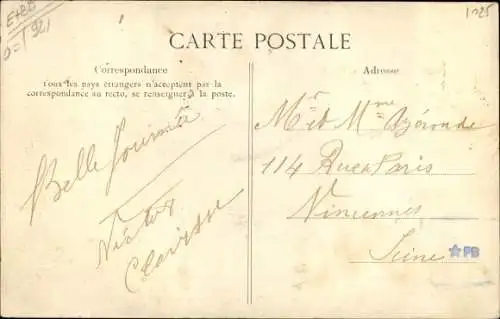 E+BB
1025
0-1921
CARTE POSTALE
Correspondance
Tous les pays étrangers n'acceptent pas la
correspondance au recto, se renseigner à la poste.
Adresse
Belle Journée
Victor
Clarisse
Mr et Mme Azéronde
114 Rue de Paris
Vincennes
Seine
PB